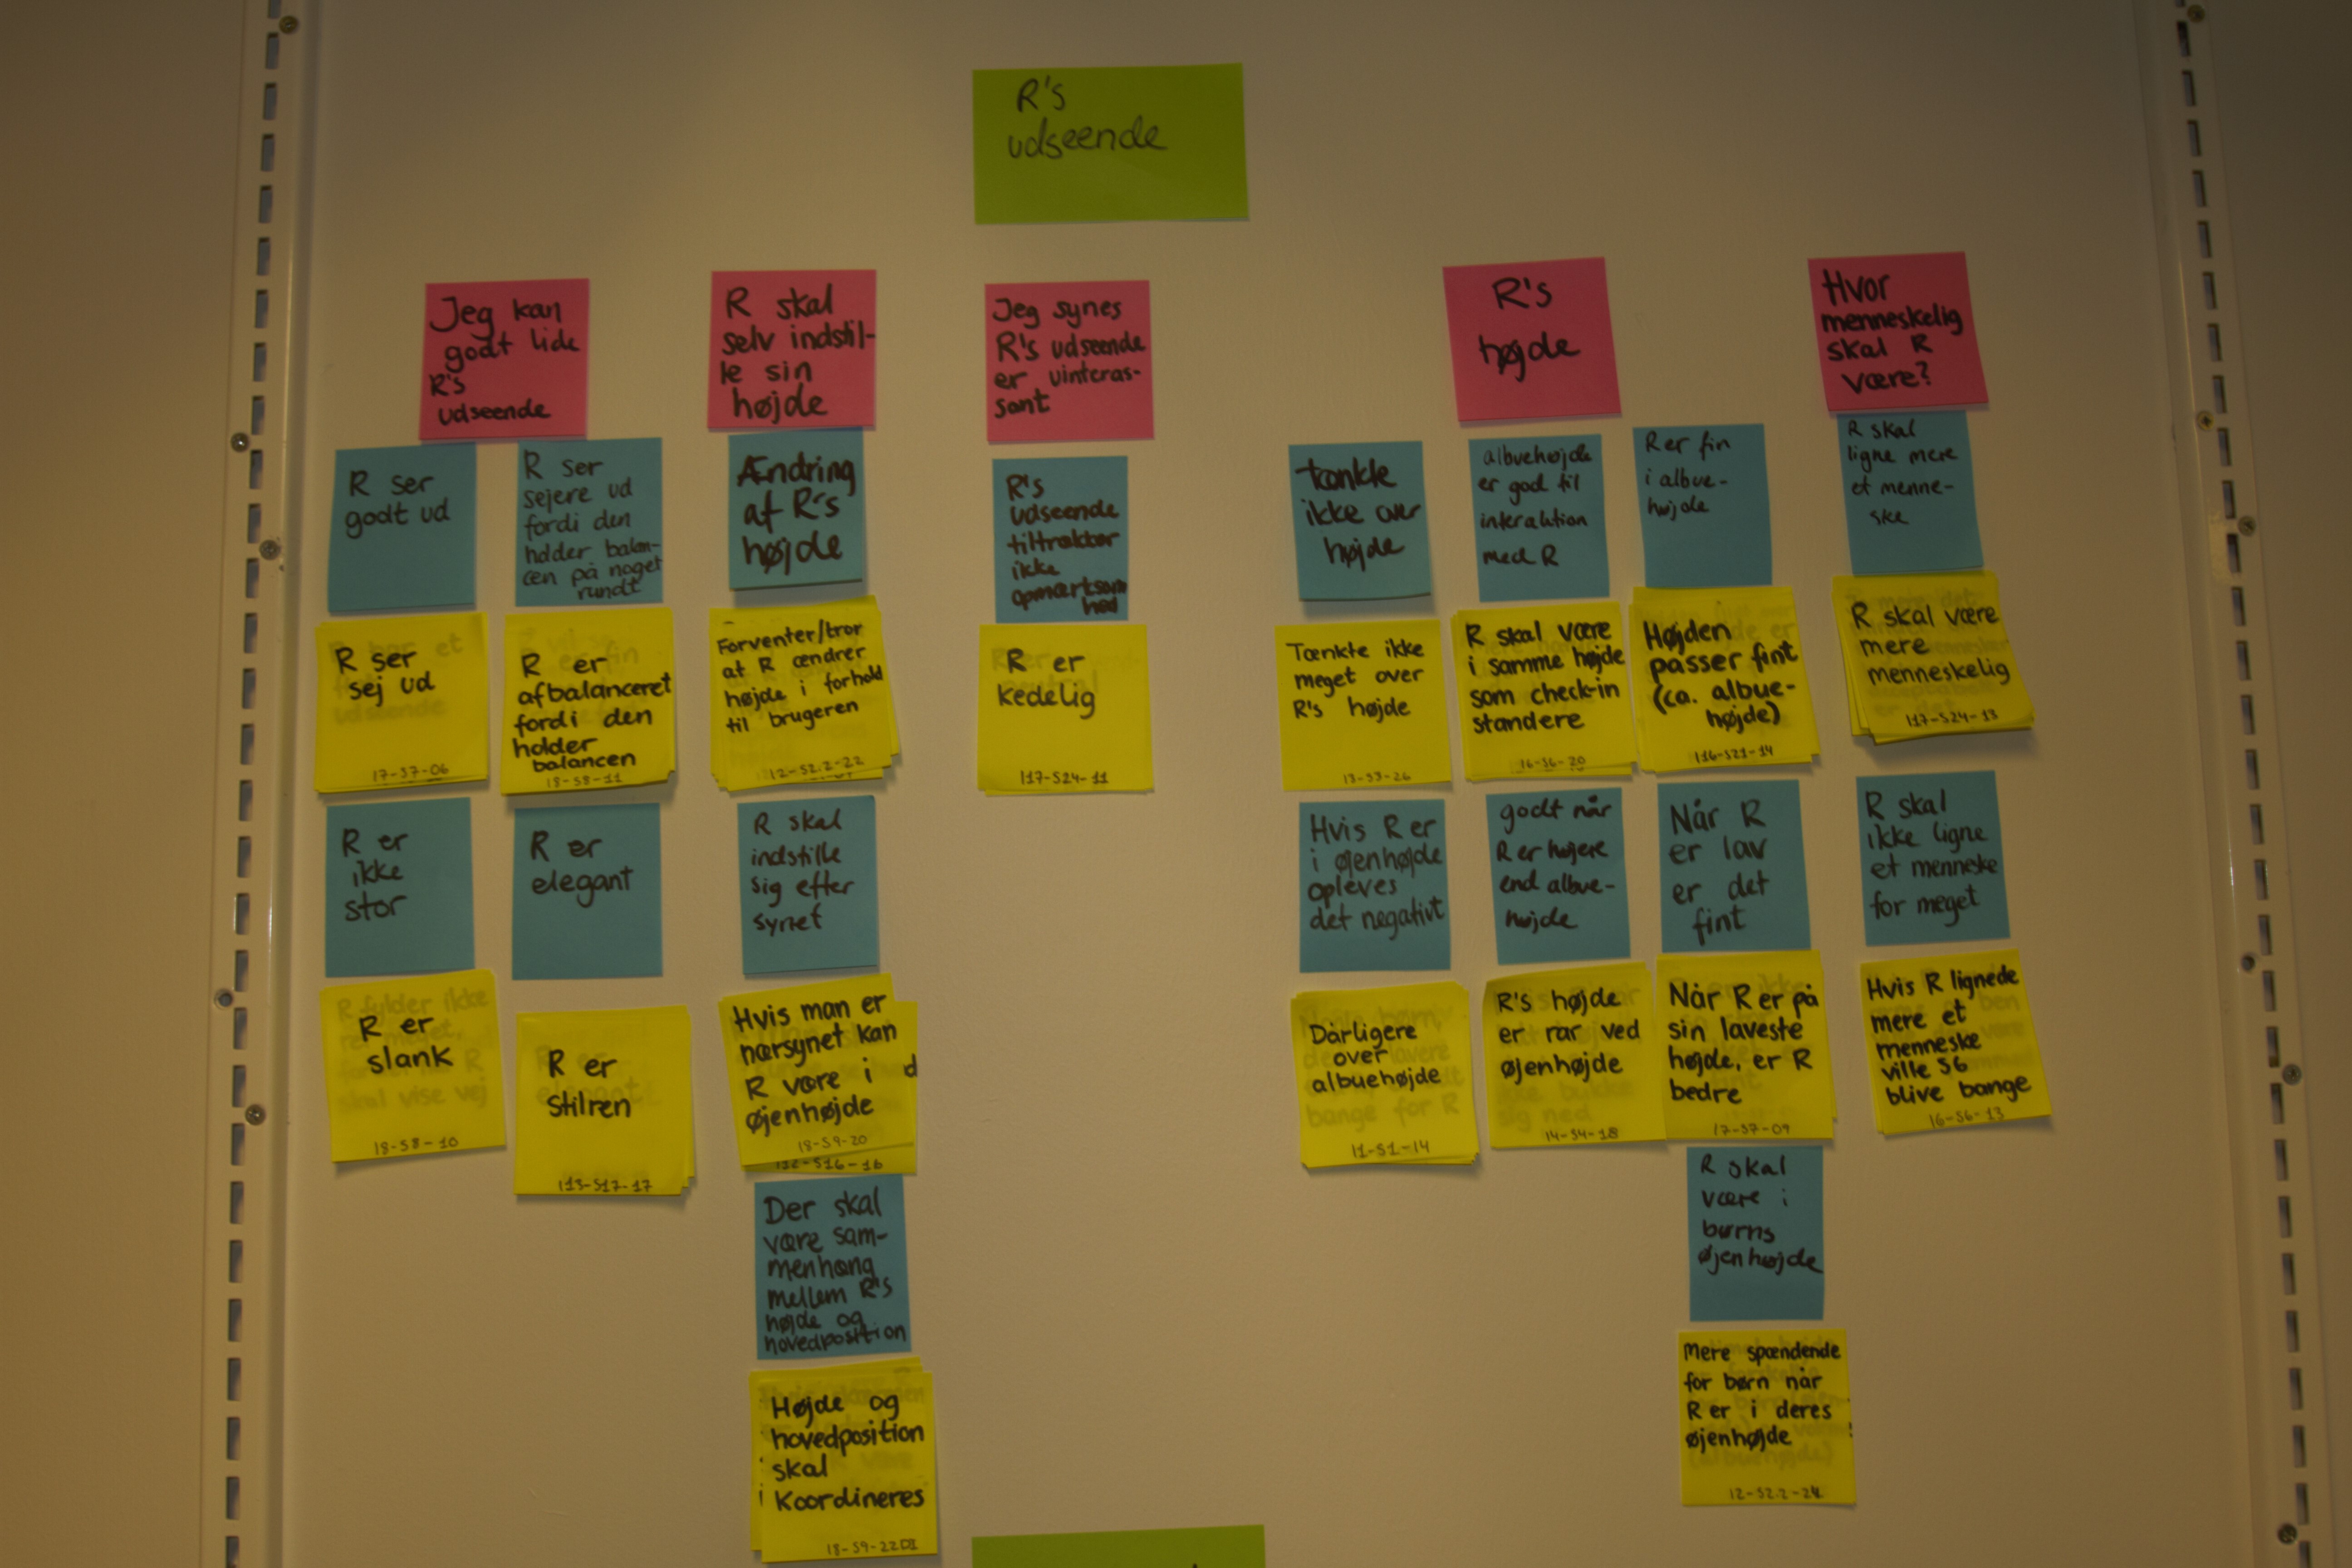 R's
udseende
Jeg kan
godt lide
R's
udseende
R ser
godt ud
R ser
sej ud
17-S7-06
R er
ikke
stor
R er
slank
18-S8-10
R ser
sejere ud
fordi den
holder balan-
cen på noget
rundt
R er
afbalanceret
fordi den
holder
balancen
18-S8-11
R er
elegant
R er
stilren
113-S17-17
R skal
selv indstil-
le sin
højde
Ændring
af R's
højde
Forventer/tror
at R ændrer
højde i forhold
til brugeren
12-S2.2-22
R skal
indstille
sig efter
synet
Hvis man er
nærsynet kan
R være i
øjenhøjde
18-S9-20
112-S16-16
Der skal
være sam-
menhæng
mellem R's
højde og
hovedposition
Højde og
hovedposition
skal
koordineres
18-S9-22
Jeg synes
R's udseende
er uinteras-
sant
R's
udseende
tiltrækker
ikke
opmærtsom
hed
R er
kedelig
117-S24-11
R's
højde
tænkte
ikke over
højde
Tænkte ikke
meget over
R's højde
13-S3-26
Hvis R er
i øjenhøjde
opleves
det negativt
Dårligere
over
albuehøjde
bange for R
11-S1-14
albuehøjde
er god til
interaktion
med R
R skal være
i samme højde
som check-in
standere
16-S6-20
godt når
R er højere
end albue-
højde
R's højde
er rar ved
øjenhøjde
14-S4-18
R er fin
i albue-
højde
Højden
passer fint
(ca. albue-
højde)
116-S21-14
Når R
er lav
er det
fint
Når R er på
sin laveste
højde, er R
bedre
17-S7-09
R skal
være i
børns
øjenhøjde
Mere spændende
for børn når
R er i deres
øjenhøjde
12-S2.2-24
Hvor
menneskelig
skal R
være?
R skal
ligne mere
et menne-
ske
R skal være
mere
menneskelig
117-S24-13
R skal
ikke ligne
et menneske
for meget
Hvis R lignede
mere et
menneske
ville S6
blive bange
16-S6-13